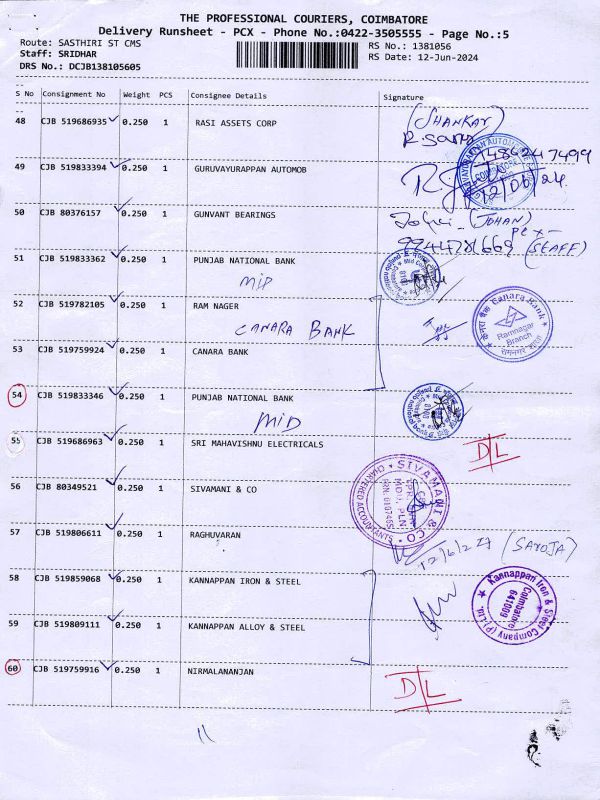 THE PROFESSIONAL COURIERS, COIMBATORE
Delivery Runsheet - PCX - Phone No.:0422-3505555 - Page No.:5
Route: SASTHIRI ST CMS RS No.: 1381056
Staff: SRIDHAR RS Date: 12-Jun-2024
DRS No.: DCJB138105605
S No Consignment No Weight PCS Consignee Details Signature
48 CJB 519686935 0.250 1 RASI ASSETS CORP (SHANKAR)
49 CJB 519833394 0.250 1 GURUVAYURAPPAN AUTOMOB 12/06/24
50 CJB 80376157 0.250 1 GUNVANT BEARINGS (JOHAN)
9944781669 (STAFF)
51 CJB 519833362 0.250 1 PUNJAB NATIONAL BANK
MID
52 CJB 519782105 0.250 1 RAM NAGER
CANARA BANK
Canara Bank
Ramnagar
Branch
53 CJB 519759924 0.250 1 CANARA BANK
54 CJB 519833346 0.250 1 PUNJAB NATIONAL BANK
MID
55 CJB 519686963 0.250 1 SRI MAHAVISHNU ELECTRICALS D/L
56 CJB 80349521 0.250 1 SIVAMANI & CO
SIVAMANI & CO
CHARTERED ACCOUNTANTS
57 CJB 519806611 0.250 1 RAGHUVARAN 12/6/24 (SAROJA)
58 CJB 519859068 0.250 1 KANNAPPAN IRON & STEEL
Kannappan Iron & Steel Company (P) Ltd.
Coimbatore
641009
59 CJB 519809111 0.250 1 KANNAPPAN ALLOY & STEEL
60 CJB 519759916 0.250 1 NIRMALANANJAN D/L